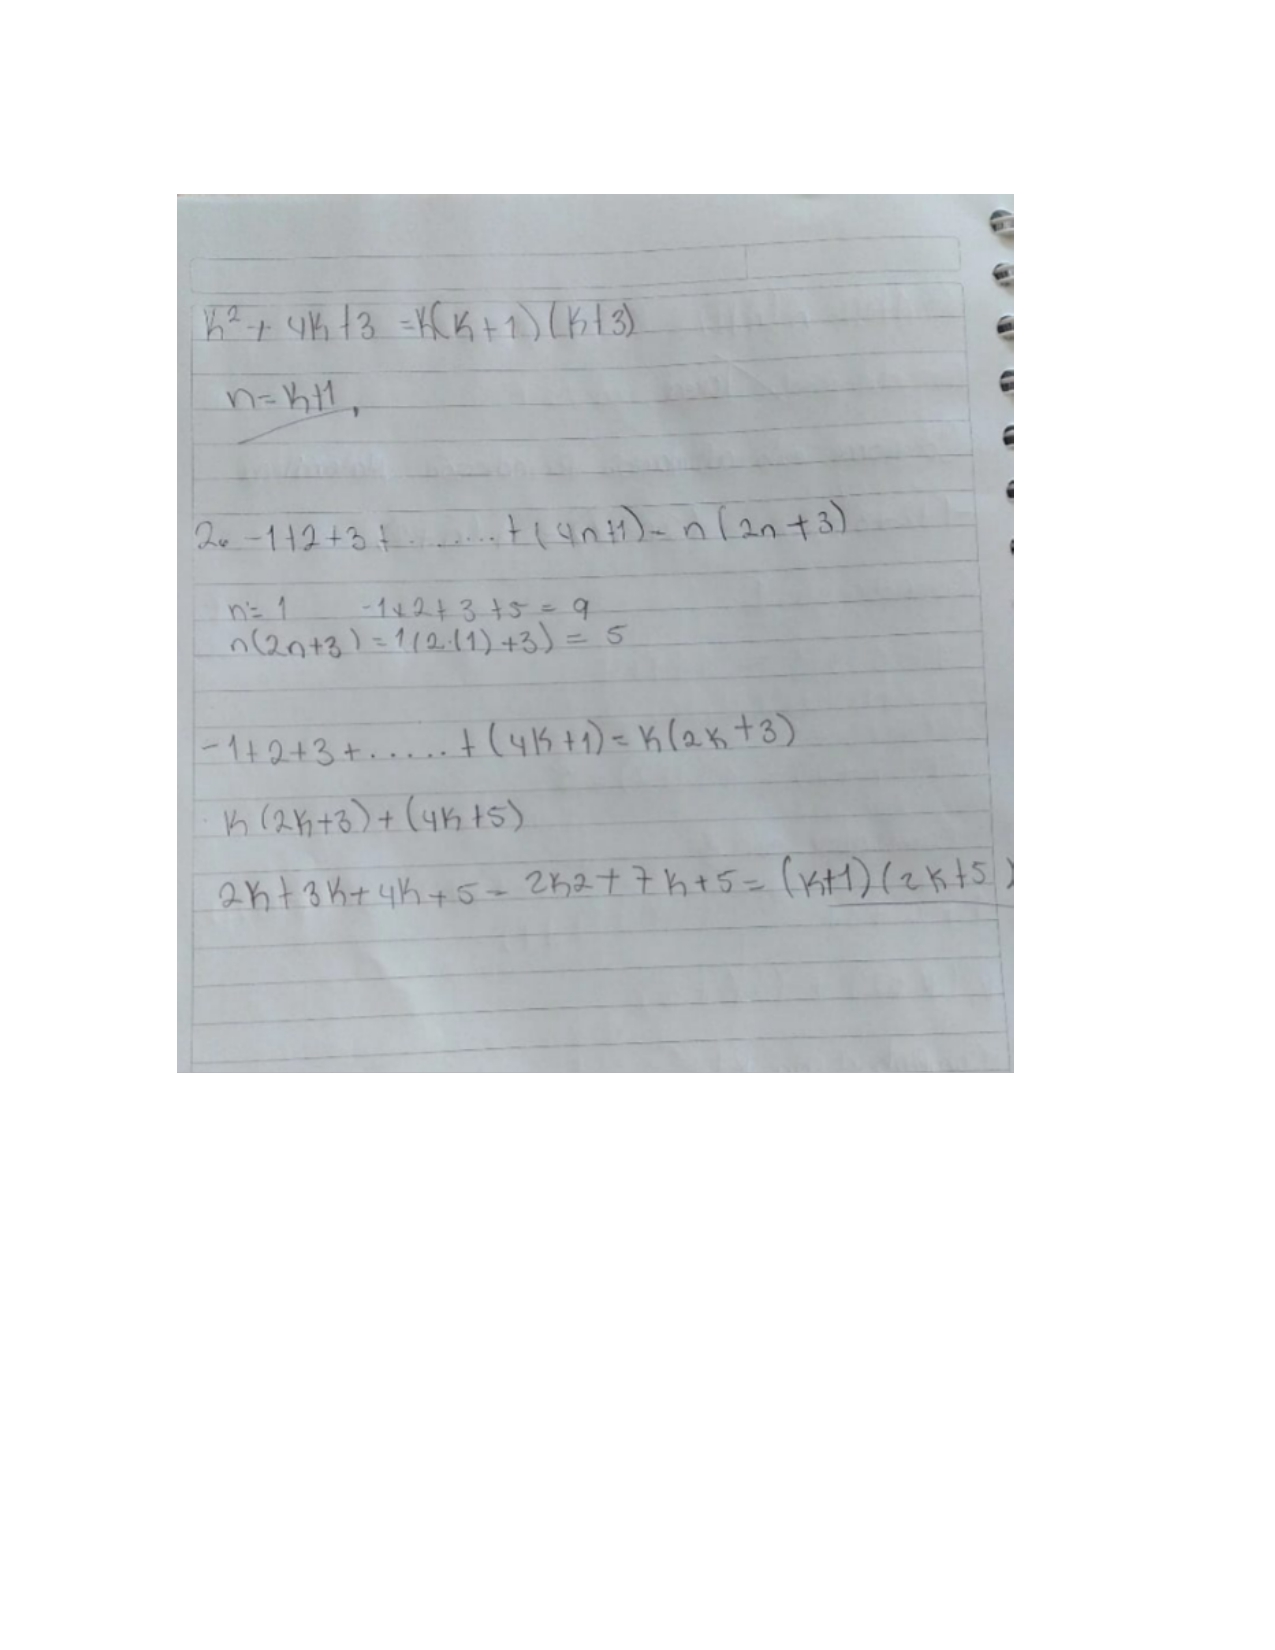 k² + 4k + 3 = k(k + 1)(k + 3)
n = k+1,
2. -1+2+3+.......+(4n+1)- n(2n+3)
n = 1 -1+2+3+5 = 9
n(2n+3) = 1(2.(1)+3) = 5
-1+2+3+.....+(4k+1) = k(2k+3)
k(2k+3)+(4k+5)
2k+3k+4k+5 - 2k2+7k+5 = (k+1)(2k+5)